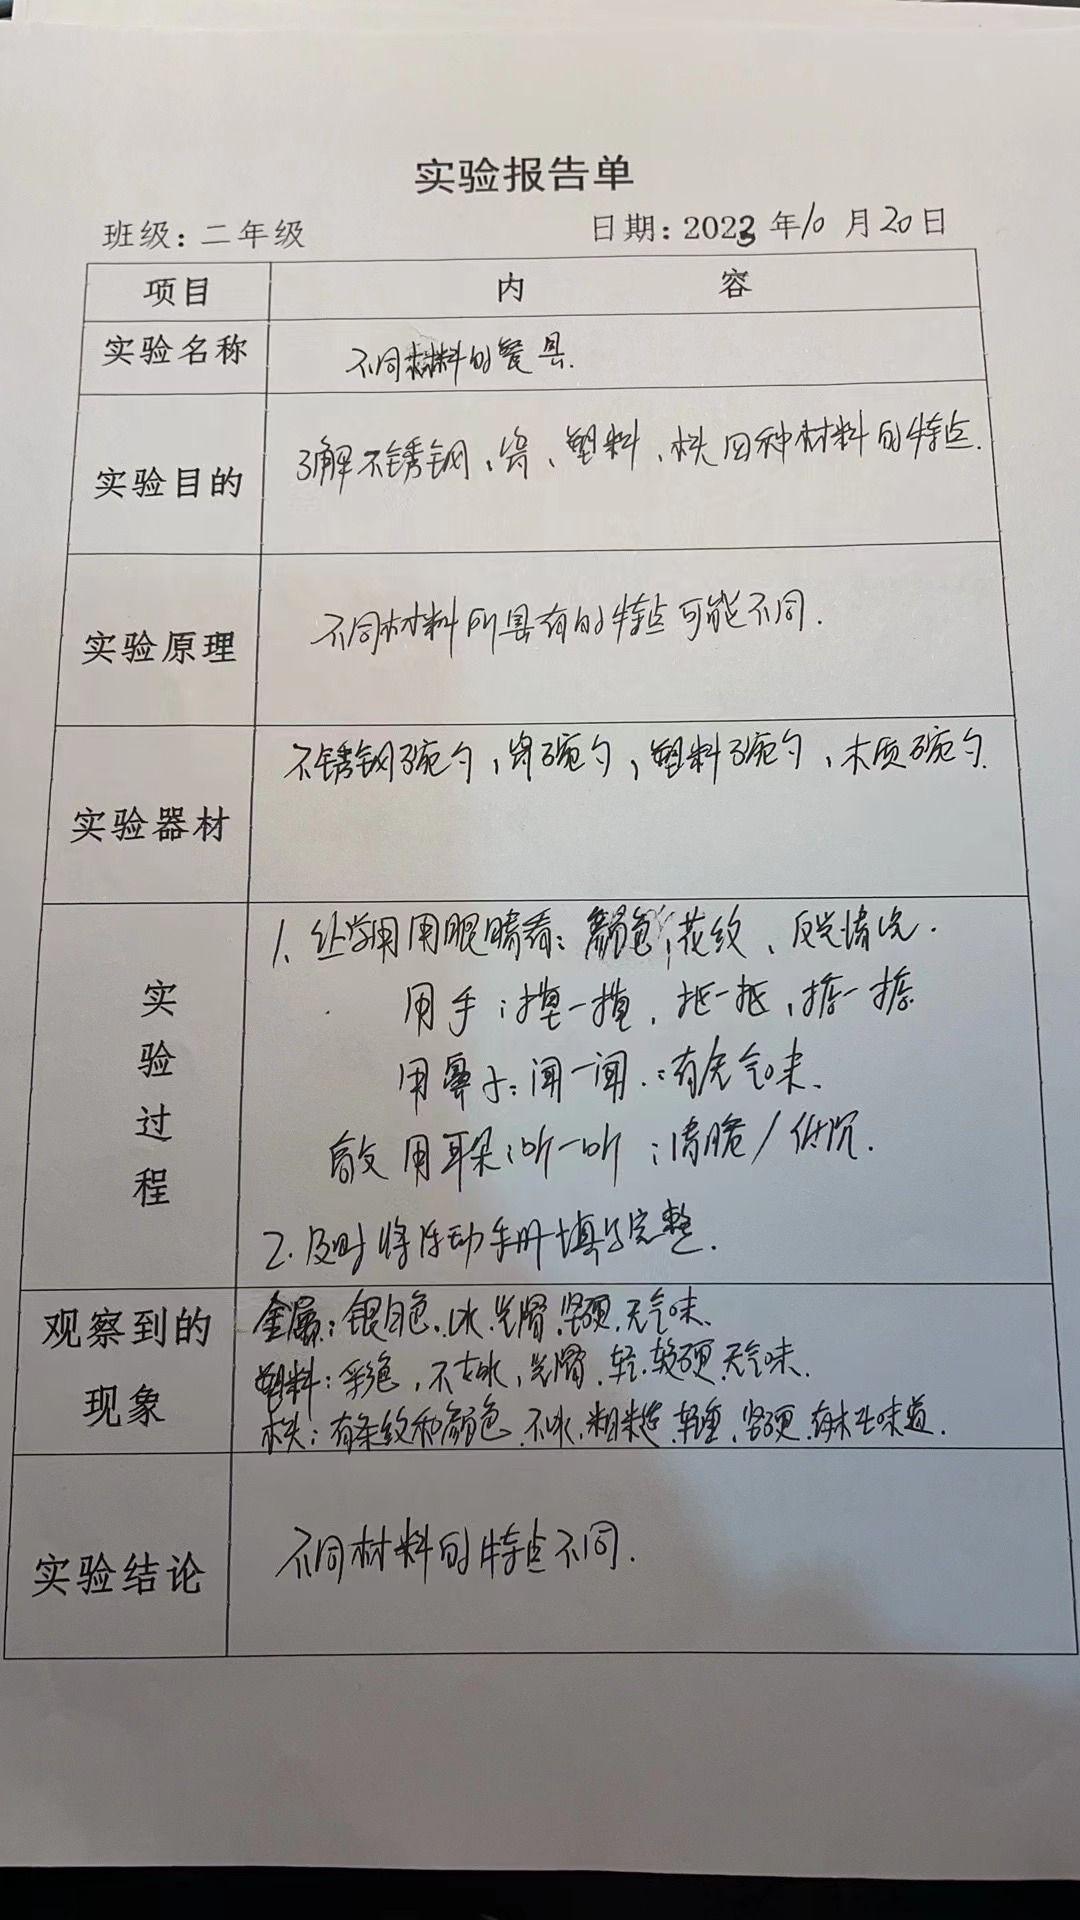 实验报告单
班级：二年级 日期：2023年10月20日
项目 内容
实验名称 不同材料的餐具.
实验目的 了解不锈钢、瓷、塑料、木头四种材料的特点.
实验原理 不同材料所具有的特点可能不同.
实验器材 不锈钢碗勺，瓷碗勺，塑料碗勺，木质碗勺.
实验过程
1、让学用用眼睛看：颜色，花纹、反光情况.
用手：摸一摸，掂一掂，
用鼻子：闻一闻：有无气味、
敲 用耳朵：听一听：清脆/低沉.
2.及时将活动手册填写完整.
观察到的现象
金属：银白色.冰.光滑.坚硬.无气味、
塑料：彩色，不太冰，光滑.轻.较硬.无气味.
木头：有条纹和颜色.不冰.粗糙.轻重.坚硬.有木头味道.
实验结论 不同材料的特点不同.